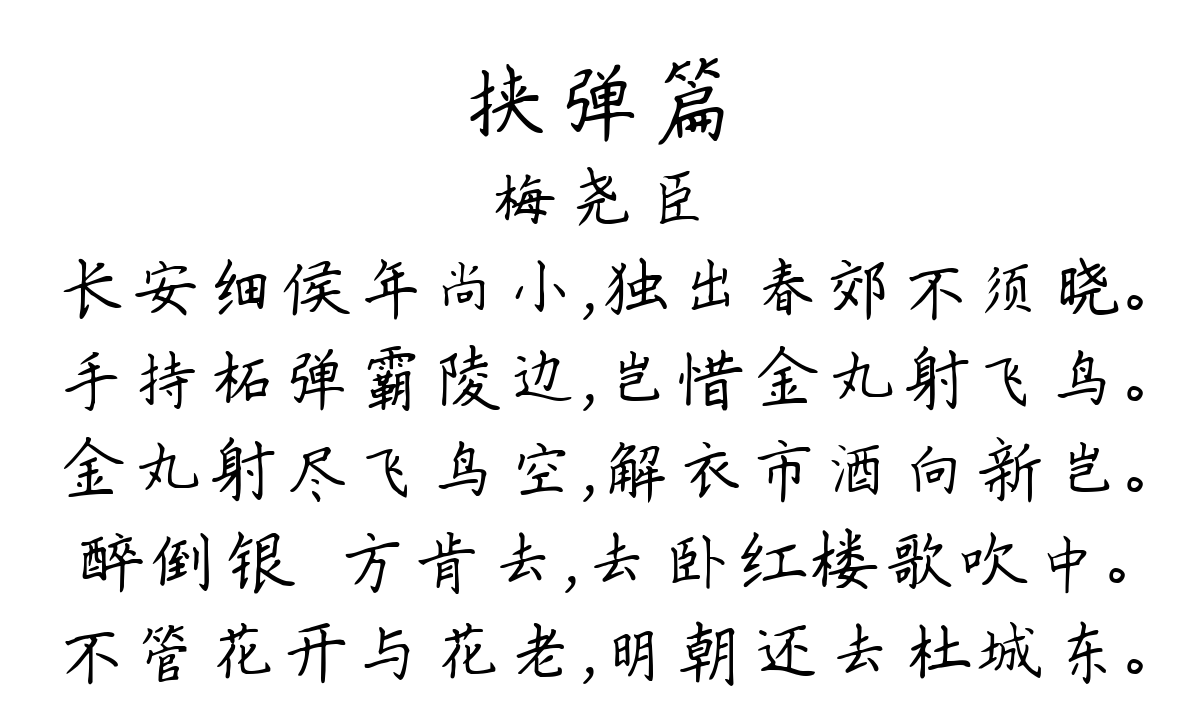 挟弹篇
梅尧臣
长安细侯年尚小,独出春郊不须晓。
手持柘弹霸陵边,岂惜金丸射飞鸟。
金丸射尽飞鸟空,解衣市酒向新岂。
醉倒银 方肯去,去卧红楼歌吹中。
不管花开与花老,明朝还去杜城东。